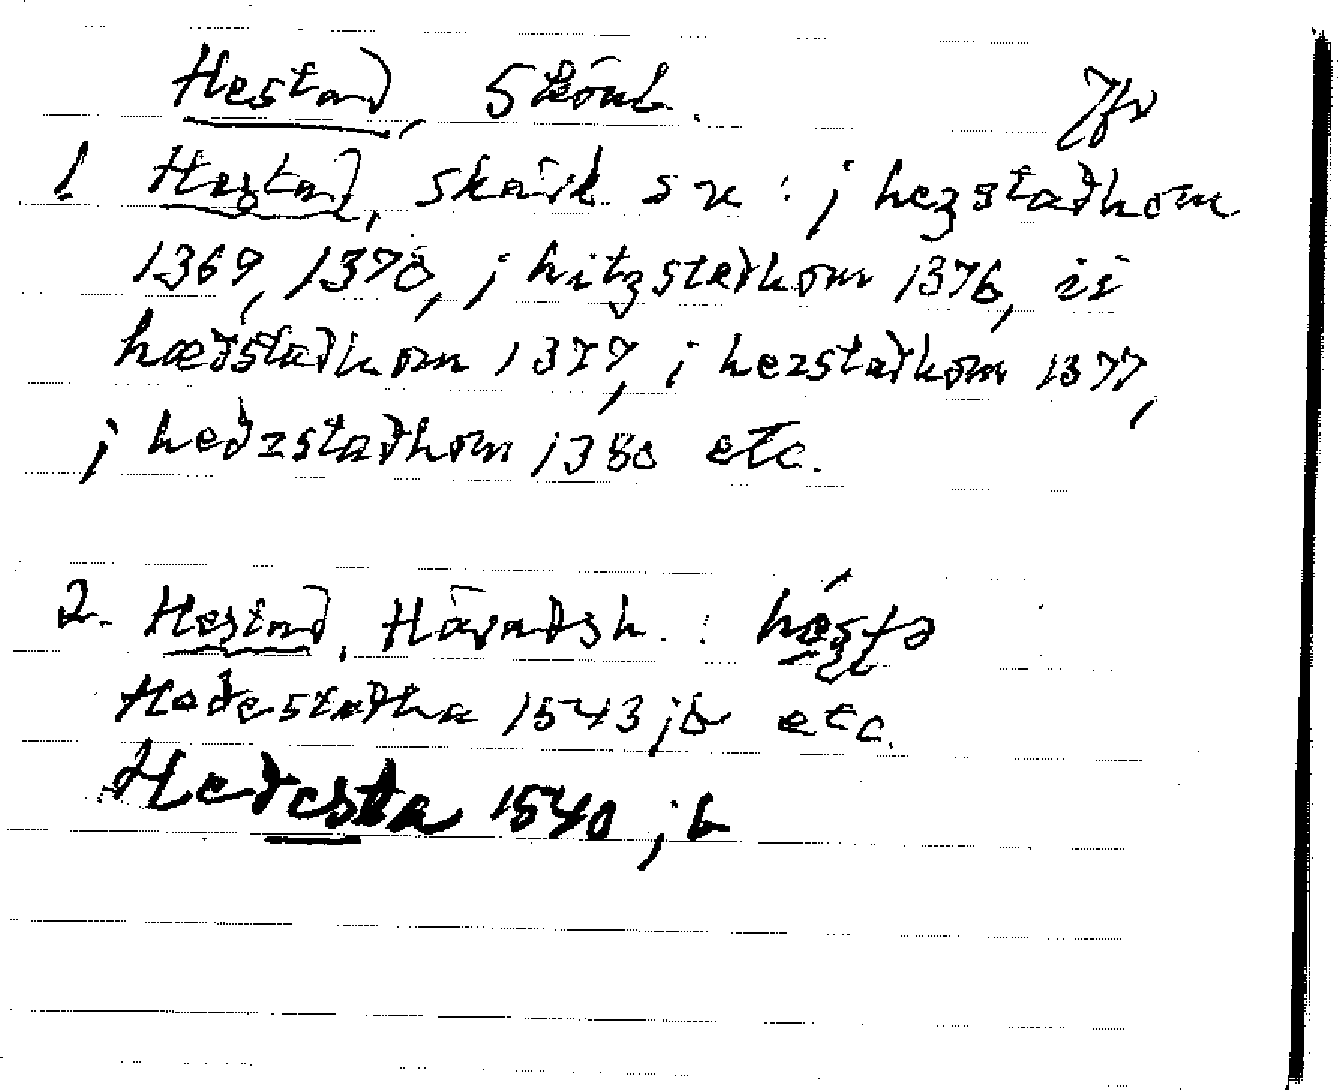 Hestad, Skönb. Jfr
1 Hestad, skånb sn : j hezstadhom
1369, 1378, j hitzstadhom 1376, ii
hædstadhom 1377, i hezstadhom 1377,
j hedzstadhom 1380 etc.
2. Hestad, Häradsh. : hésta
Hadestadha 1543 jb etc.
Hedesta 1540 jb